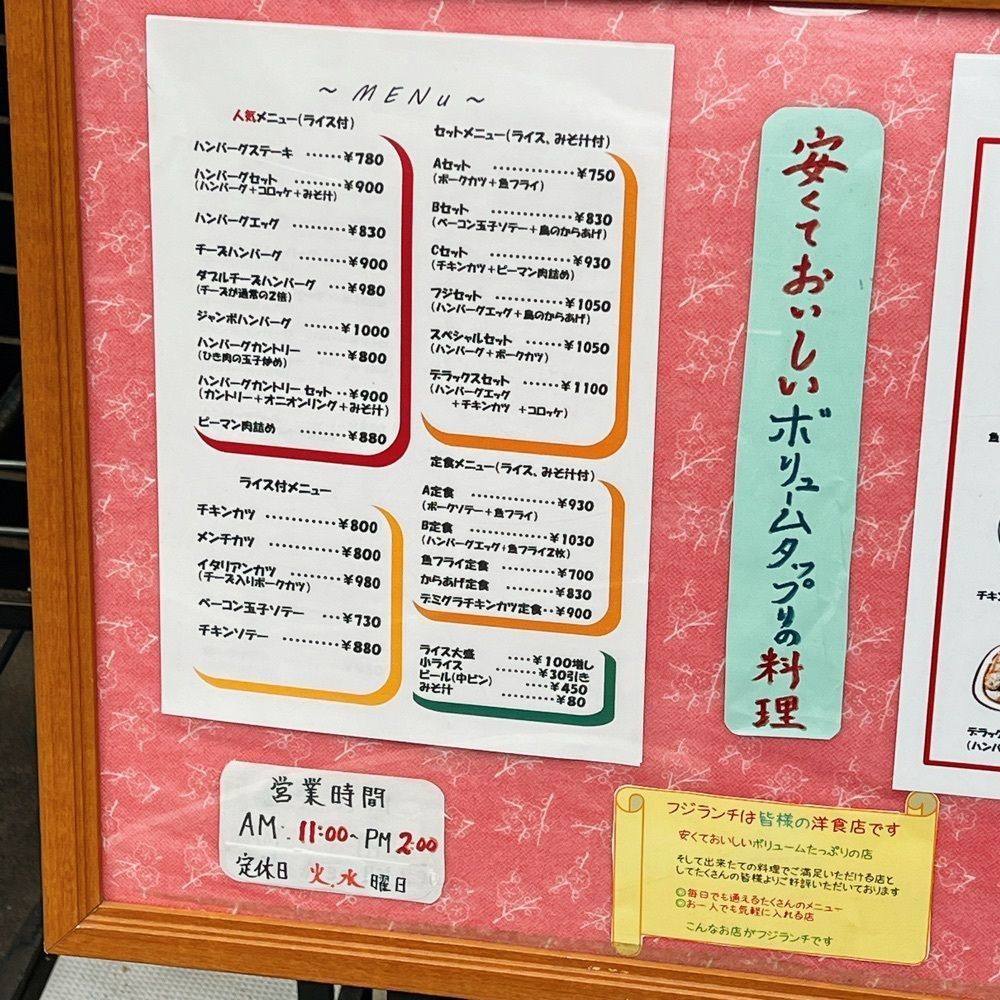 ～MENu～
人気メニュー(ライス付)
ハンバーグステーキ ……￥780
ハンバーグセット ……￥900
(ハンバーグ＋コロッケ＋みそ汁)
ハンバーグエッグ ………￥830
チーズハンバーグ ………￥900
ダブルチーズハンバーグ …￥980
(チーズが通常の2倍)
ジャンボハンバーグ ……￥1000
ハンバーグカントリー ……￥800
(ひき肉の玉子炒め)
ハンバーグカントリーセット‥￥900
(カントリー＋オニオンリング＋みそ汁)
ピーマン肉詰め ………￥880
ライス付メニュー
チキンカツ …………￥800
メンチカツ …………￥800
イタリアンカツ …………￥980
(チーズ入りポークカツ)
ベーコン玉子ソテー ………￥730
チキンソテー …………￥880
セットメニュー(ライス、みそ汁付)
Aセット ……………￥750
(ポークカツ＋魚フライ)
Bセット ……………￥830
(ベーコン玉子ソテー＋鳥のからあげ)
Cセット ……………￥930
(チキンカツ＋ピーマン肉詰め)
フジセット …………￥1050
(ハンバーグエッグ＋鳥のからあげ)
スペシャルセット ………￥1050
(ハンバーグ＋ポークカツ)
デラックスセット ……￥1100
(ハンバーグエッグ
＋チキンカツ ＋コロッケ)
定食メニュー(ライス、みそ汁付)
A定食 ……………￥930
(ポークソテー＋魚フライ)
B定食 ……………￥1030
(ハンバーグエッグ＋魚フライ2枚)
魚フライ定食 …………￥700
からあげ定食 ………￥830
デミグラチキンカツ定食‥￥900
ライス大盛 ……￥100増し
小ライス ………￥30引き
ビール(中ビン) ……￥450
みそ汁 ………￥80
安くておいしいボリュームタップリの料理
営業時間
AM. 11:00～PM 2:00
定休日 火.水 曜日
フジランチは皆様の洋食店です
安くておいしいボリュームたっぷりの店
そして出来たての料理でご満足いただける店と
してたくさんの皆様よりご好評いただいております
◎毎日でも通えるたくさんのメニュー
◎お一人でも気軽に入れる店
こんなお店がフジランチです
魚
チキン
デラック
(ハンバ